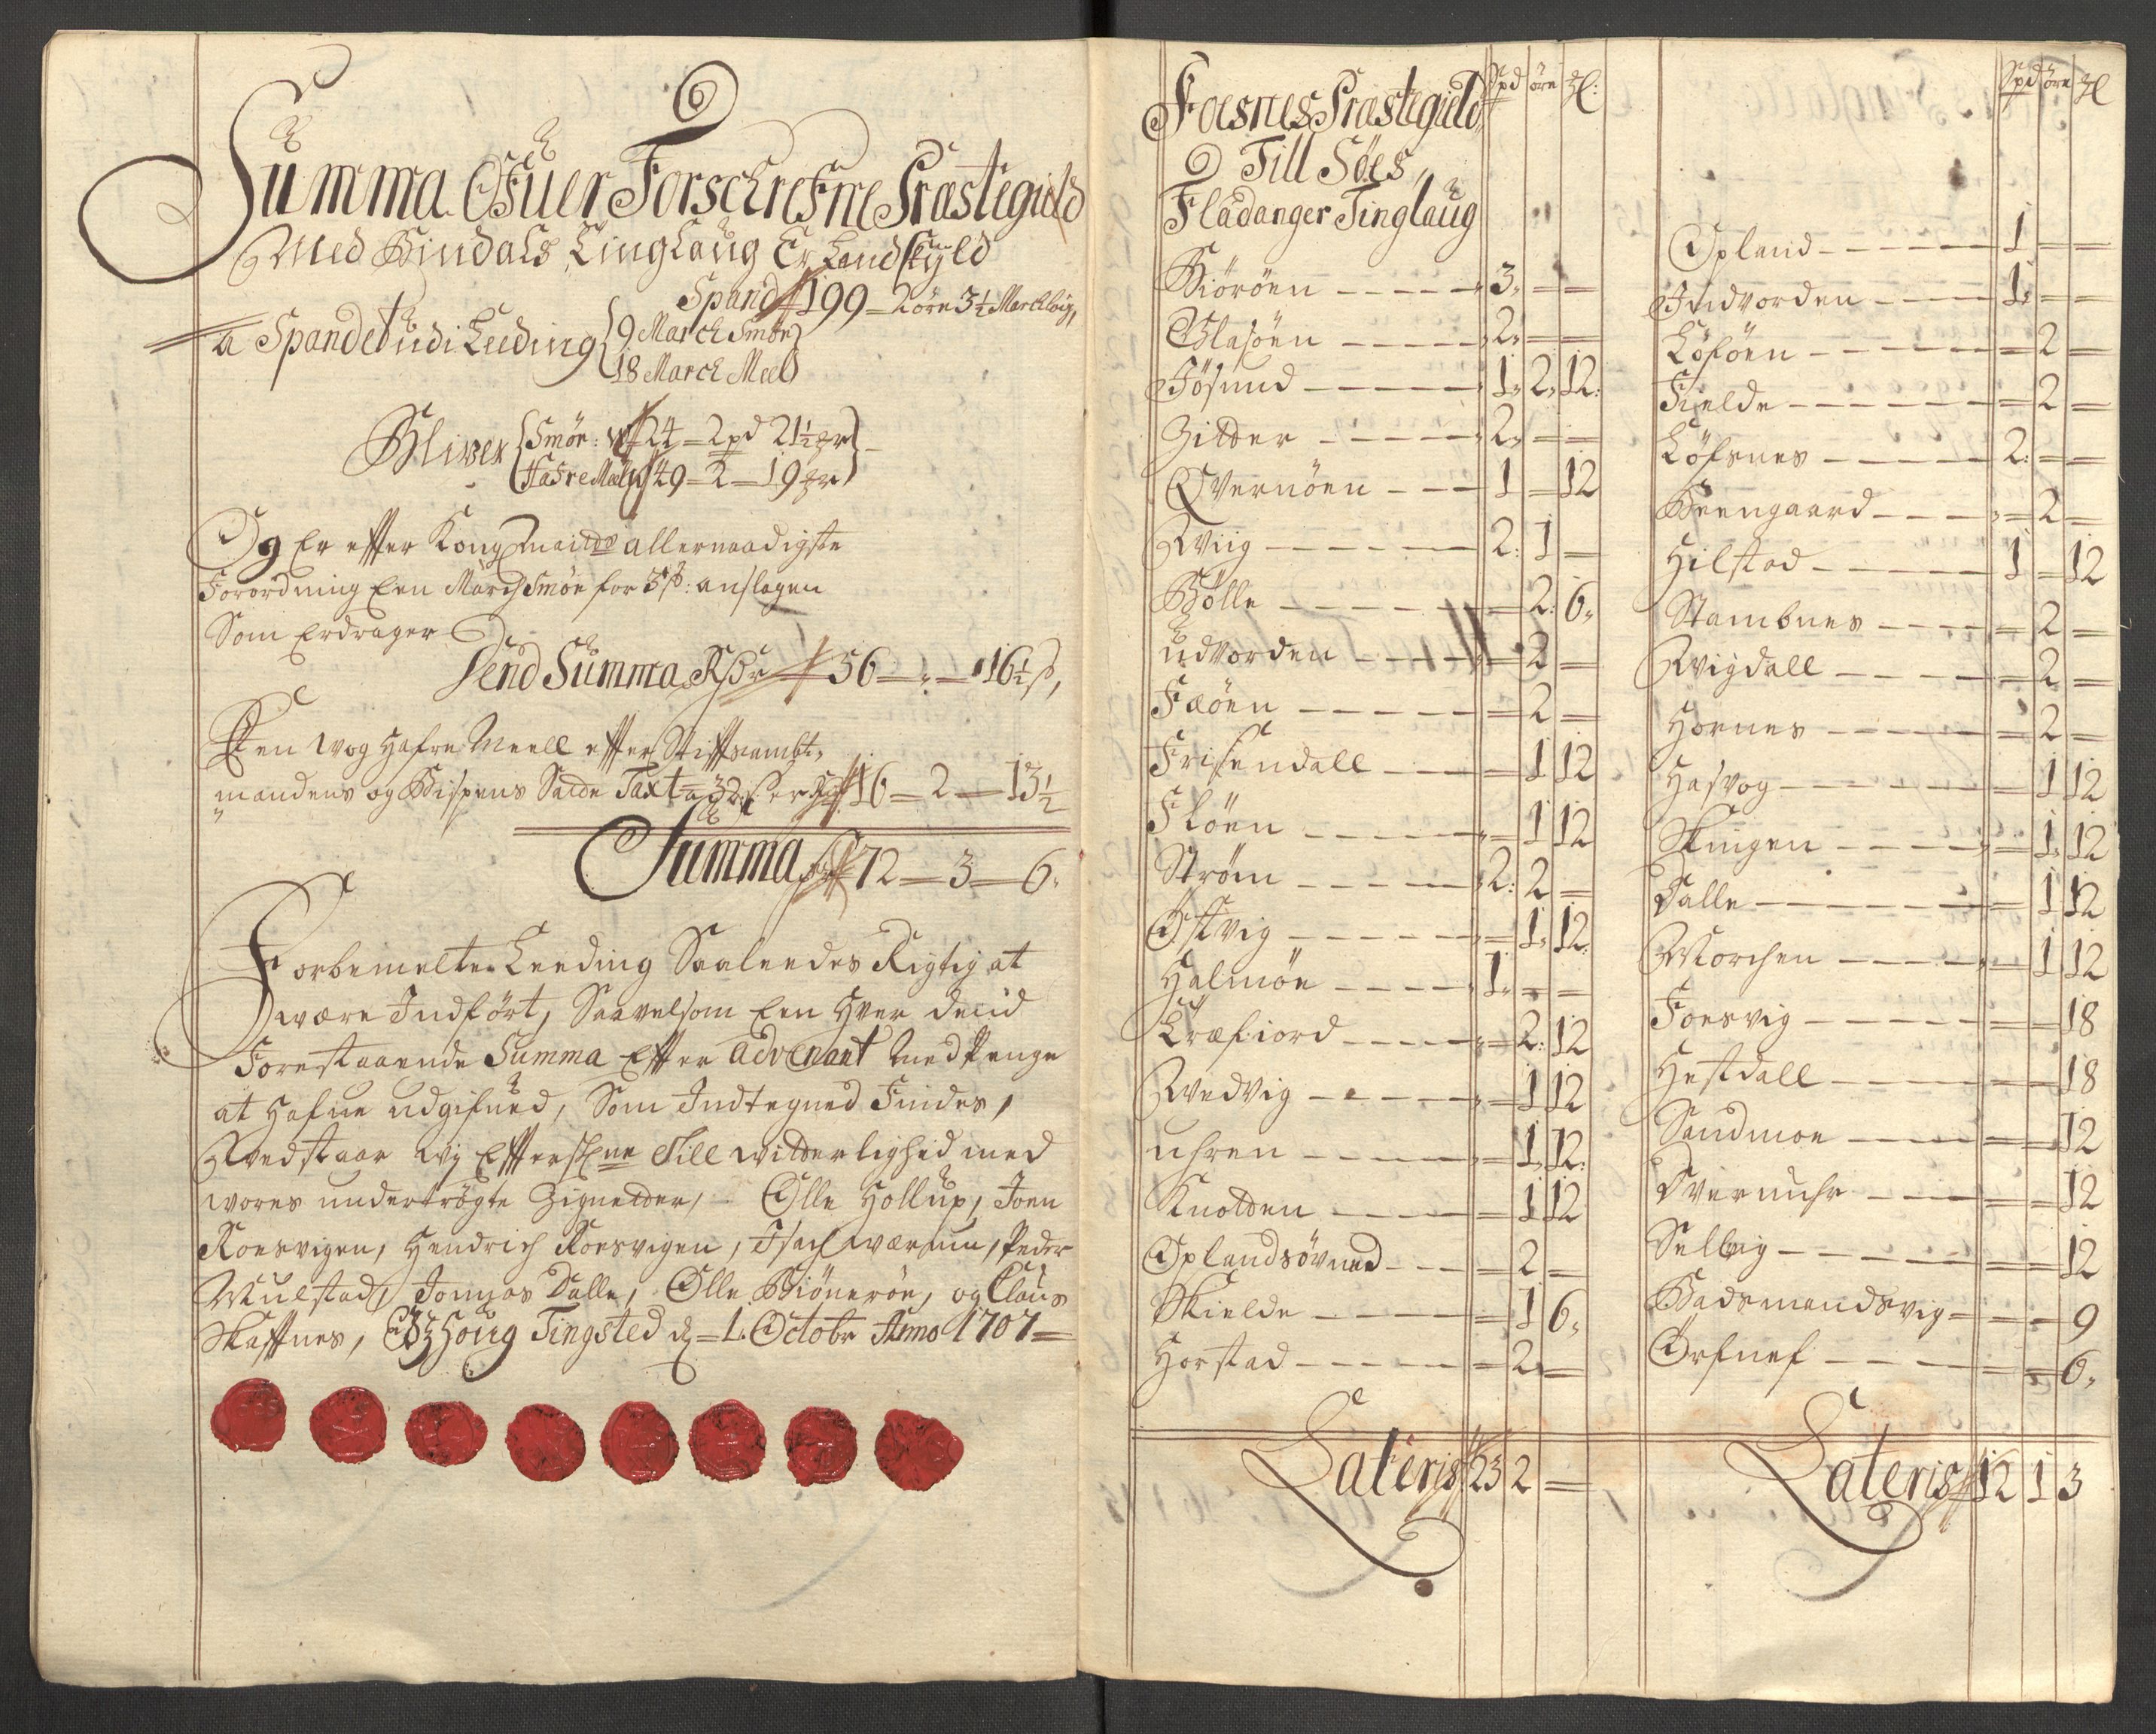 Summa Ofuer Forschrefne Præstegield
Med Bindals Tinglaug Er Landskyld
Spand 199 – 2 öre 3½ Marchlaug,
a Spandet udi Leding { 9 March Smör
18 March Meel
Bliver { Smör: w 24 – 2 pd 21½ mr
Hafre Meel w 49 – 2 – 19 mr
Og Er effter Kong Maitts allernaadigste
Forordning Een March Smör for 3½ ß: anslagen
Som bedrager
Dend Summa Rdr 56 – „ – 16½ ß,
Een wog Hafre Meell effter Stifftsambt-
mandens og Bispens Satte Taxt a 32 ß er Rdr 16 – 2 – 13½
Summa Rdr 72 – 3 – 6.
Forbemelte Leeding Saaleedes Rigtig at
være Indfört, Saavelsom Een Hver deris
Forestaaende Summa Effter advenant med Penge
at Hafue udgifued, Som Indtegned Findes,
Tilstaar Wj Efftersch: Till witterlighed med
vores undertrögte Zignetter, Olle Hollup, Joen
Roesvigen, Hendrich Roesvigen, Isach Værum, Peder
Mulstad, Jonnas Dalle, Olle Biönneröe, og Claus
Skaffnes, Houg Tingsted d. 1. Octobr Anno 1707
Foesnes Præstegield Spd öre ml:
Till Söes,
Fladanger Tinglaug
Biöröen 3 – –
Blasöen 2 – –
Jösund 1 2 12
Zitter 2 – –
Qvernöen 1 – 12
Wiig 2 1 –
Bölle – 2 6
Udvorden – 2 –
Fæöen – 2 –
Frisendall – 1 12
Flöen – 1 12
Ström 2 2 –
Östvig – 1 12
Halmöe 1 – –
Kræfiord – 2 12
Wedvig – 1 12
Uhren – 1 12
Knotten – 1 12
Oplandsövned – 2 –
Skielde – 1 6
Horstad – 2 –
Lateris 23 2 –
Spd öre ml
Opland 1 – –
Indvorden 1 – –
Löföen – 2 –
Fielde – 2 –
Löfsnes 2 – –
Beengaard – 2 –
Hilstad 1 – 12
Stambnes – 2 –
Wigdall – 2 –
Hornes – 2 –
Hasvog – 1 12
Skingen – 1 12
Dalle – 1 12
Morchen – 1 12
Foesvig – – 18
Hestdall – – 18
Sandmoe – – 12
Overuhr – – 12
Sellvig – – 12
Badsmandsvig – – 9
Ørfnef – – 6
Lateris 12 1 3